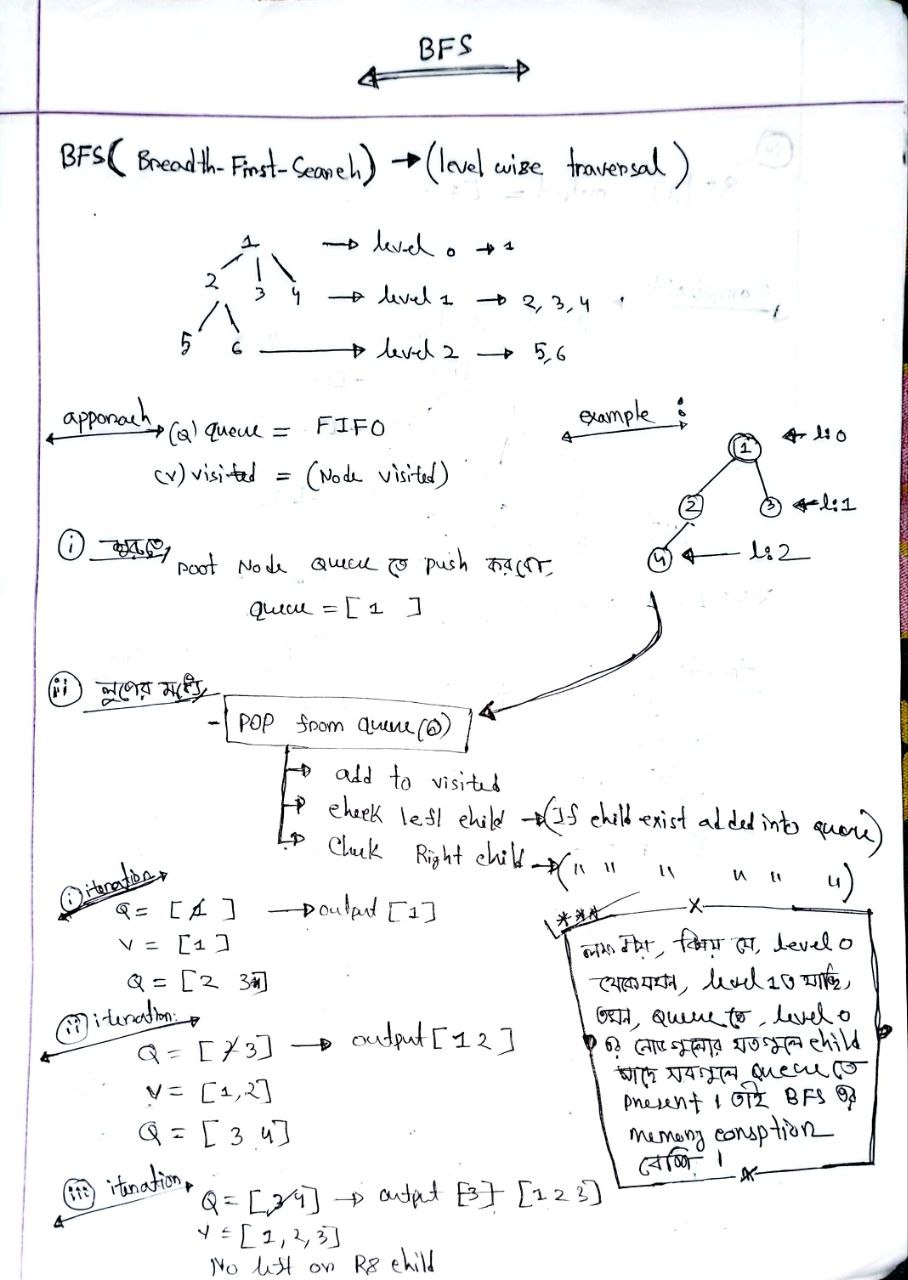 BFS
BFS( Breadth-First-Search) → (level wise traversal)
1 → level 0 → 1
2 3 4 → level 1 → 2, 3, 4
5 6 → level 2 → 5,6
approach
(Q) queue = FIFO
(V) visited = (Node visited)
example :
1 ← l:0
2 3 ← l:1
4 ← l:2
i শুরুতে,
root Node queue তে push করবো,
queue = [ 1 ]
ii লুপের মধ্যে,
- POP from queue(Q)
→ add to visited
→ check left child → (If child exist added into queue)
→ Check Right child → (" " " " " ")
i iteration
Q = [ 1 ] → output [1]
V = [1]
Q = [2 3]
ii iteration:
Q = [ 2 3] → output [1 2]
V = [1,2]
Q = [ 3 4]
iii iteration
Q = [3 4] → output [3] [1 2 3]
V = [1, 2, 3]
No left or R8 child
***
বিষয় যে, level 0
থেকে যখন, level 1 এ যাচ্ছি,
তখন, queue তে, level 0
এর নোড গুলোর যতগুলো child
আছে সবগুলো queue তে
present । তাই BFS এর
memory consption
বেশি ।